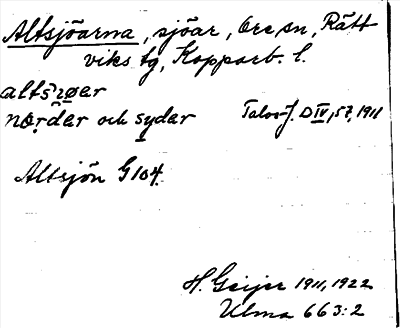 Altsjöarna, sjöar, Ore sn, Rätt
viks tg, Kopparb. l.
altsjöer
norder och syder Talovj. DIV, 57, 1911
Altsjön G104.
H. Geijer 1911, 1922
Ulma 663:2